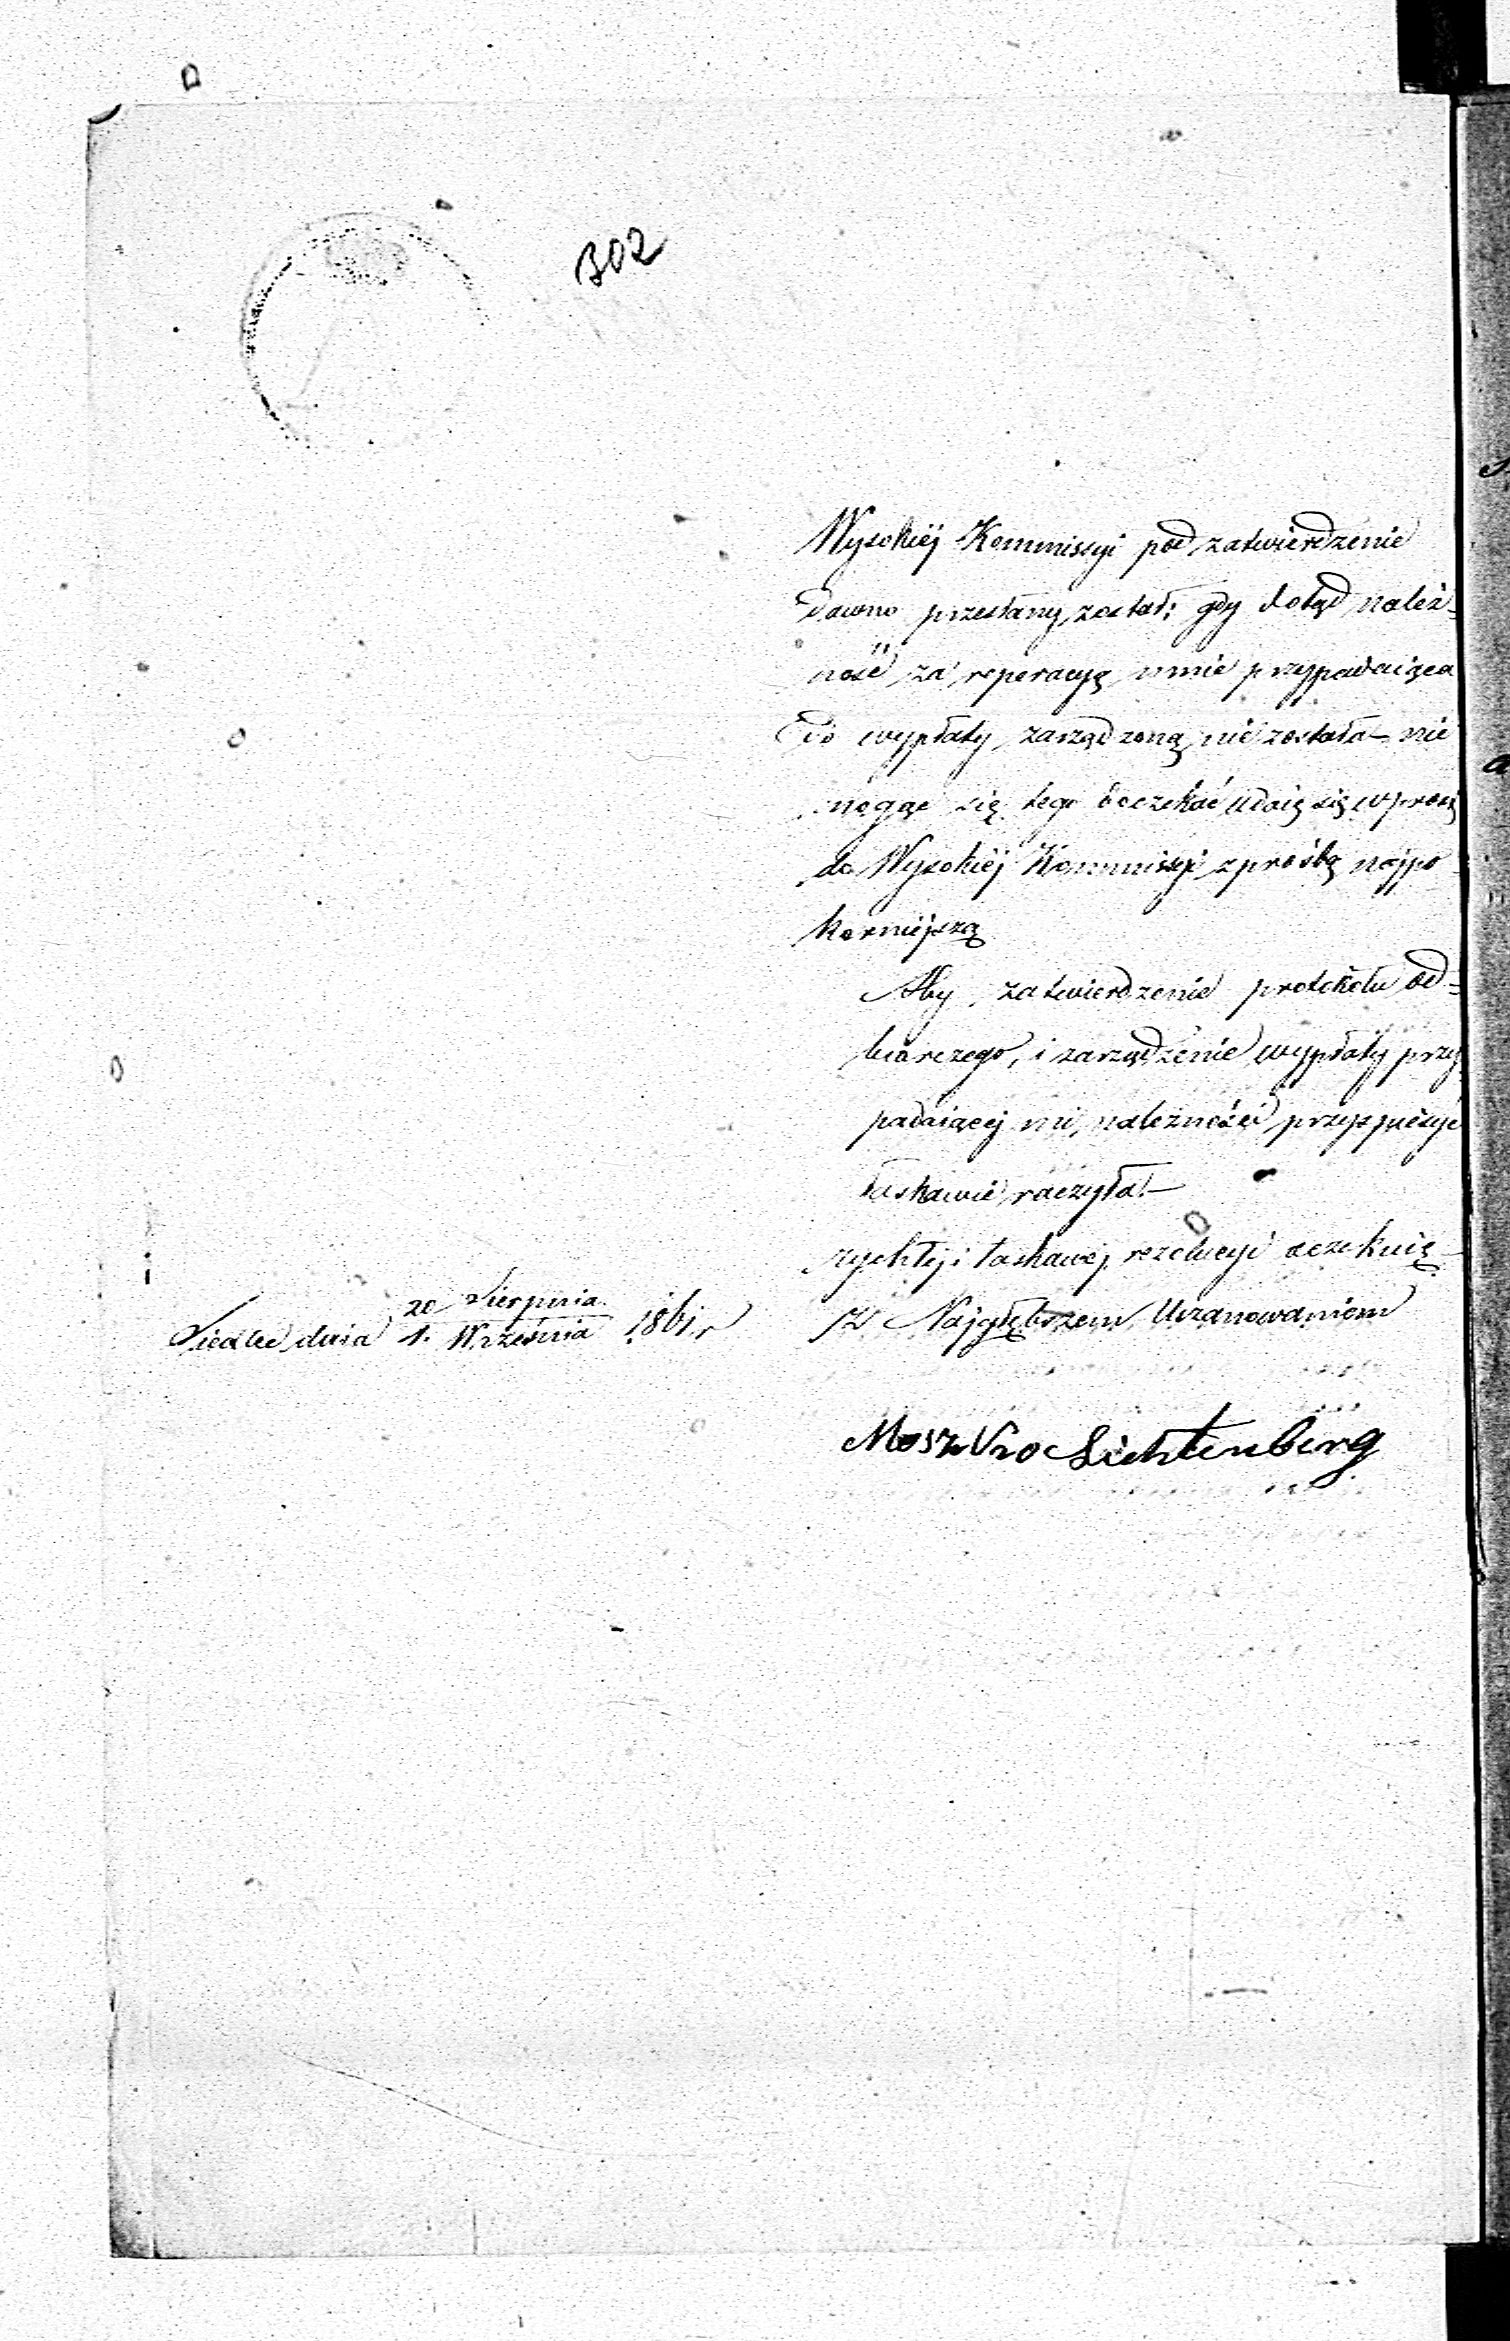 302
Wysokiéj Kommissyi pod zatwierdzenie
dawno przesłany został; gdy dotąd należ=
ność za reperacyą mnie przypadaiąca
do wypłaty zarządzoną nie została – nie
mogąc się tego doczekać udaię się wprost
do Wysokiéj Kommissyi z prośbą najpo
korniejszą
Aby zatwierdzenie protokółu od=
biorczego, i zarządzenie wypłaty przy
padaiącej mi należności przyspieszyć
łaskawie raczyła. –
rychłej i łaskawej rezolucyi oczekuię –
Z Najgłębszem Uszanowaniem
20 Sierpnia
Siedlce dnia 1. Września 1861 r
Lichtenberg